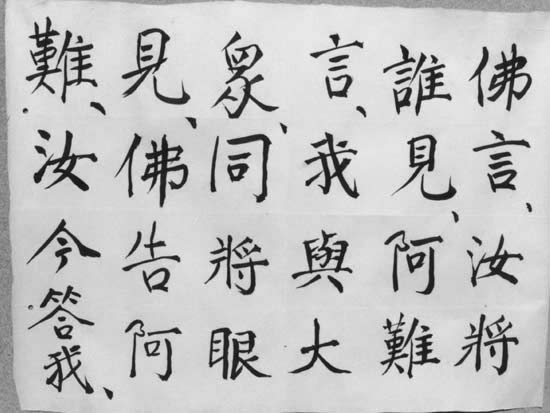 佛言、汝將
誰見、阿難
言、我與大
衆、同將眼
見、佛告阿
難、汝今答我、